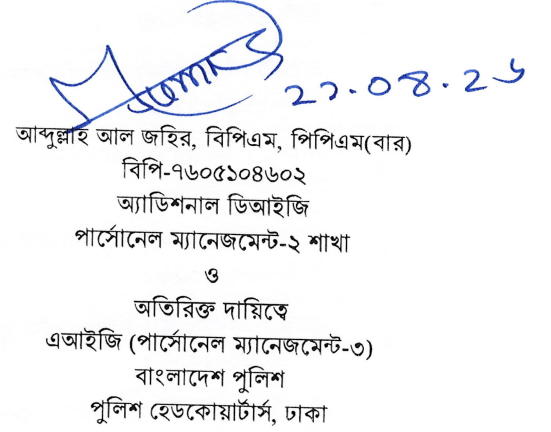 আব্দুল্লাহ আল জহির, বিপিএম, পিপিএম(বার)
বিপি-৭৬০৫১০৪৬০২
অ্যাডিশনাল ডিআইজি
পার্সোনেল ম্যানেজমেন্ট-২ শাখা
ও
অতিরিক্ত দায়িত্বে
এআইজি (পার্সোনেল ম্যানেজমেন্ট-৩)
বাংলাদেশ পুলিশ
পুলিশ হেডকোয়ার্টার্স, ঢাকা